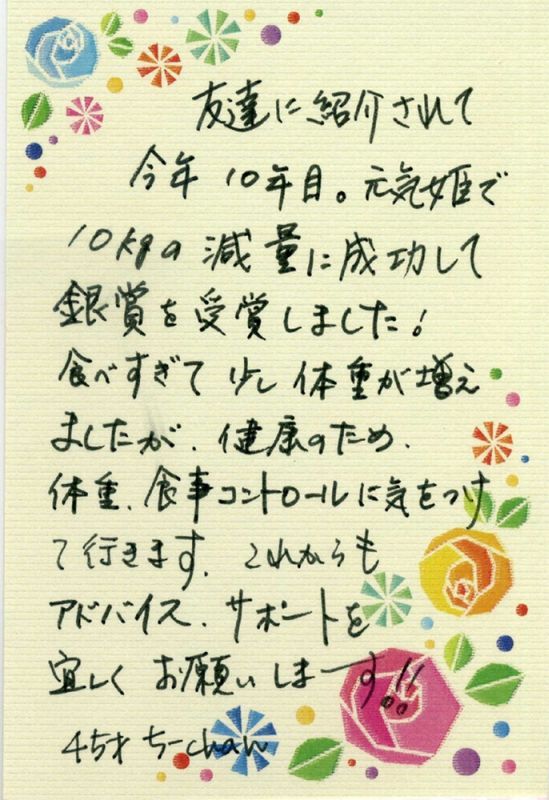 友達に紹介されて
今年10年目。元気姫で
10kgの減量に成功して
銀賞を受賞しました!
食べすぎて少し体重が増え
ましたが、健康のため、
体重、食事コントロールに気をつけ
て行きます。これからも
アドバイス、サポートを
宜しくお願いしまーす!!
45才 ちーchan